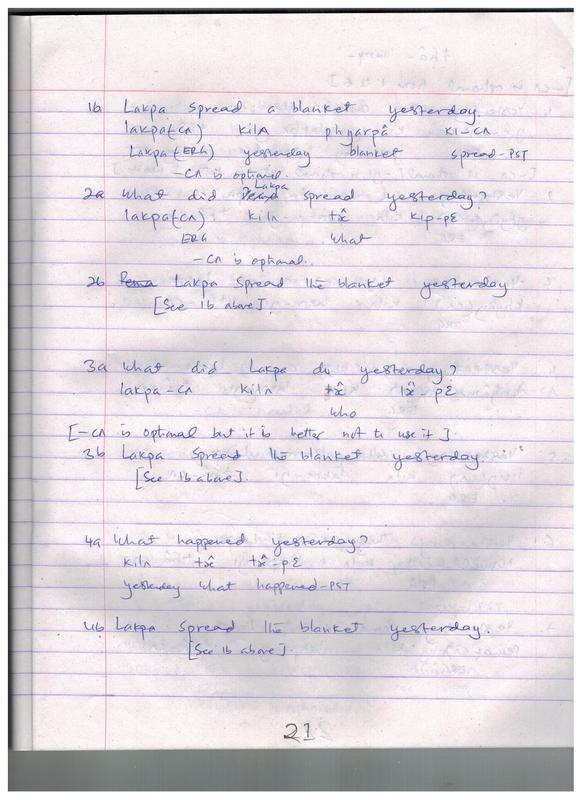 1b Lakpa spread a blanket yesterday
lakpa(-cʌ) kilʌ phyarpâ ki-cʌ
Lakpa(-ERG) yesterday blanket spread-PST
-cʌ is optional.
2a What did Lakpa spread yesterday?
lakpa(-cʌ) kilʌ kip-pɛ
ERG what
-cʌ is optional.
2b Lakpa spread the blanket yesterday
[See 1b above].
3a What did Lakpa do yesterday?
lakpa-cʌ kilʌ
who
[-cʌ is optional but it is better not to use it].
3b Lakpa spread the blanket yesterday.
[See 1b above].
4a What happened yesterday?
kilʌ
yesterday what happened-PST
4b Lakpa spread the blanket yesterday.
[See 1b above].
21